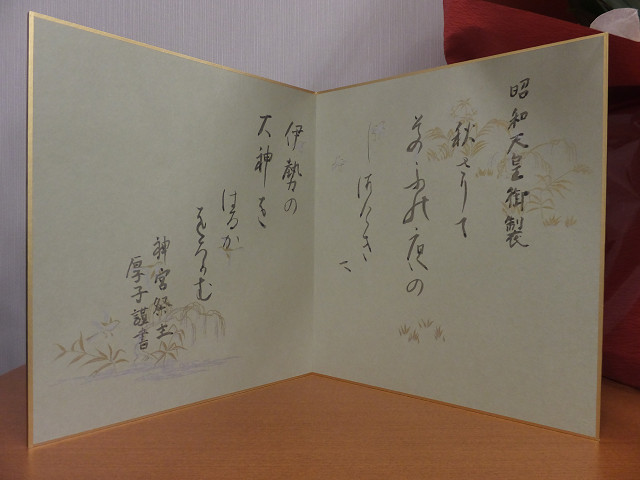 昭和天皇御製
秋さりて
そのふの夜の
しつけきに
伊勢の
大神を
はるか
をろかむ
神宮祭主
厚子謹書